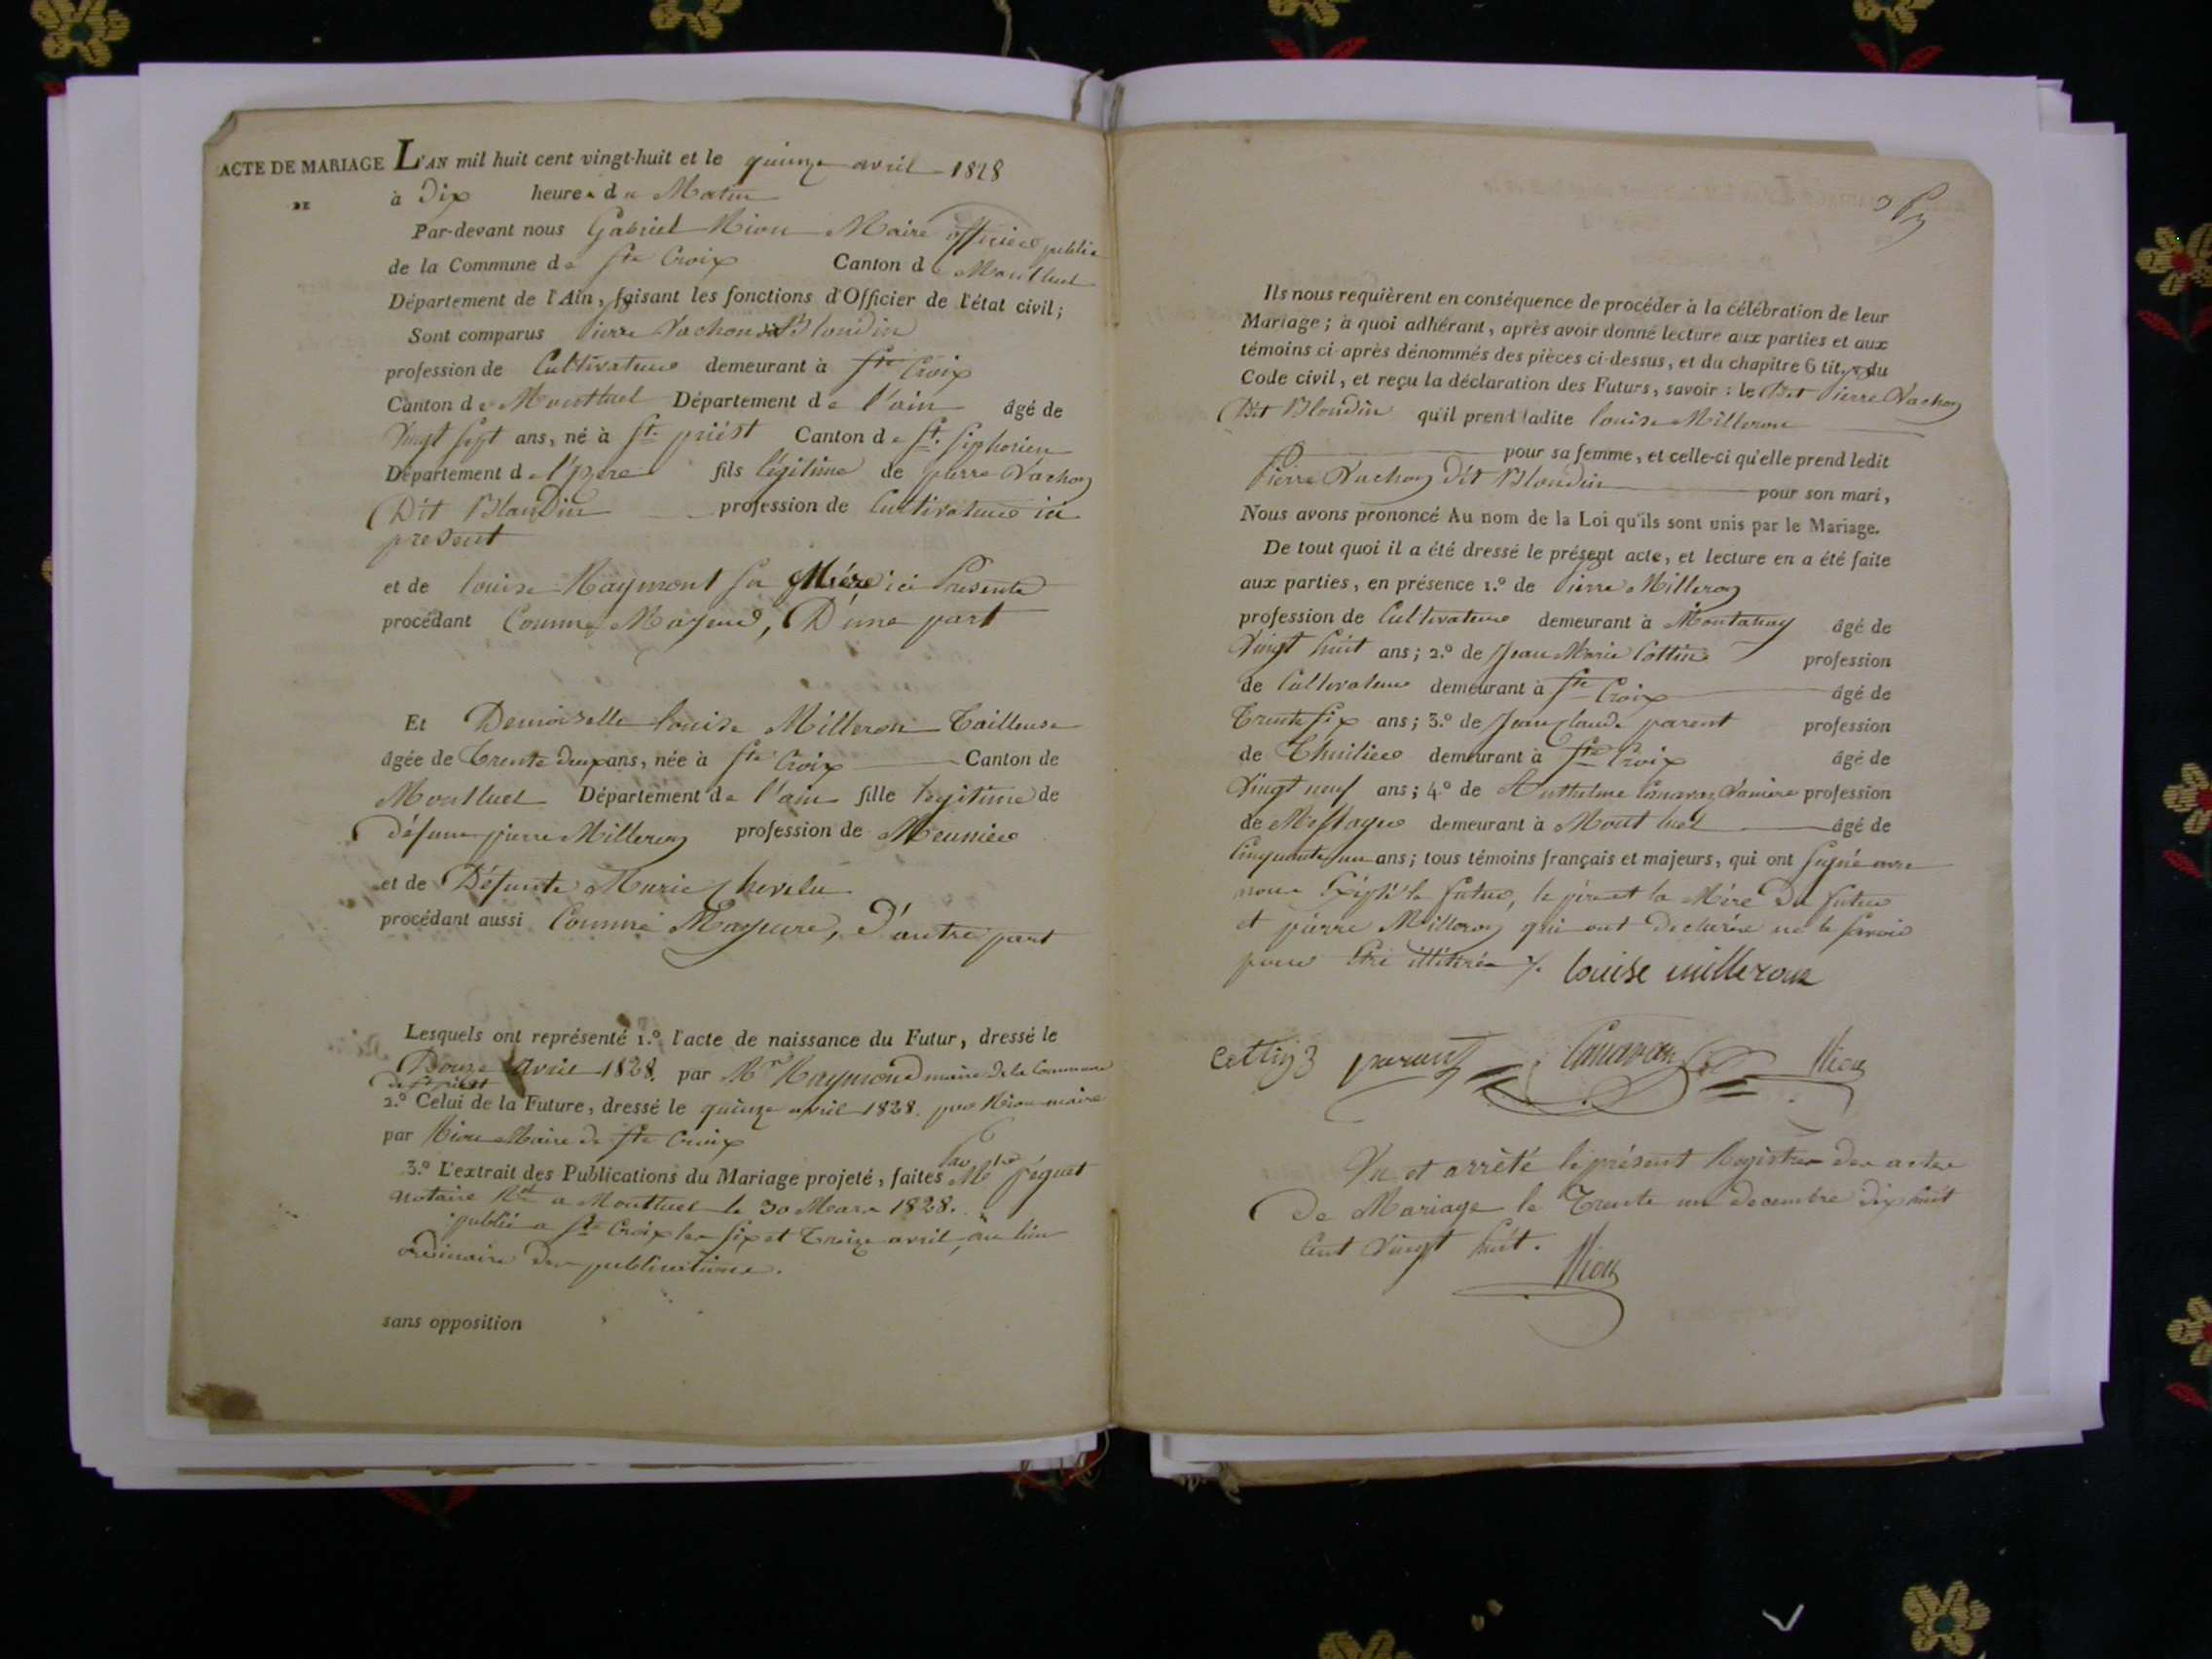 ACTE DE MARIAGE L'AN mil huit cent vingt-huit et le quinze avril 1828
DE à Dix heures du Matin
Par-devant nous Gabriel Maire officier public
de la Commune de Ste Croix Canton de Montluel
Département de l'Ain, faisant les fonctions d'Officier de l'état civil;
Sont comparus Pierre Vachon dit Blondin
profession de Cultivateur demeurant à Ste Croix
Canton de Montluel Département de l'ain âgé de
Vingt sept ans, né à St. priest Canton de St. Siphorien
Département de l'Isere fils légitime de pierre Vachon
Dit Blondin profession de Cultivateur ici
present
et de louise Raymont sa Mère ici Presente
procédant Comme Majeur, D'une part
Et Demoiselle louise Milleron Tailleuse
âgée de Trente deux ans, née à Ste Croix Canton de
Montluel Département de l'ain fille légitime de
défunt pierre Milleron profession de Meunier
et de Défunte Marie
procédant aussi Comme Majeure, d'autre part
Lesquels ont représenté 1.º l'acte de naissance du Futur, dressé le
Douze avril 1828. par Mr Raymond maire de la Commune
de St priest
2.º Celui de la Future, dressé le quinze avril 1828. par maire
par Maire de Ste Croix
3.º L'extrait des Publications du Mariage projeté, faites Me
notaire a Montluel le 30 Mars 1828.
publié a Ste Croix les six et Treize avril, au lieu
ordinaire des publications.
sans opposition
Ils nous requièrent en conséquence de procéder à la célébration de leur
Mariage; à quoi adhérant, après avoir donné lecture aux parties et aux
témoins ci-après dénommés des pièces ci-dessus, et du chapitre 6 tit. 5 du
Code civil, et reçu la déclaration des Futurs, savoir: le Dit Pierre Vachon
Dit Blondin qu'il prend ladite louise Milleron
pour sa femme, et celle-ci qu'elle prend ledit
Pierre Vachon dit Blondin pour son mari,
Nous avons prononcé Au nom de la Loi qu'ils sont unis par le Mariage.
De tout quoi il a été dressé le présent acte, et lecture en a été faite
aux parties, en présence 1.º de Pierre Milleron
profession de Cultivateur demeurant à Montanay âgé de
Vingt huit ans; 2.º de Jean Marie Cottin profession
de Cultivateur demeurant à Ste Croix âgé de
Trente six ans; 3.º de Jean Claude parent profession
de Thuilier demeurant à Ste Croix âgé de
Vingt neuf ans; 4.º de Anthelme profession
de demeurant à Montluel âgé de
Cinquante un ans; tous témoins français et majeurs, qui ont signé avec
nous Exépté le futur, le père et la Mère du futur
et pierre Milleron qui ont declarés ne le savoir
pour Etre illitérés ./. louise milleron
Cottin parent Canavan
Vu et arrêté le présent Registre des actes
de Mariage le Trente un decembre dix huit
Cent Vingt huit.